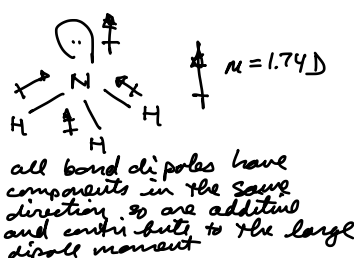 N
μ = 1.74 D
H
H
H
all bond dipoles have
components in the same
direction so are additive
and contribute to the large
dipole moment